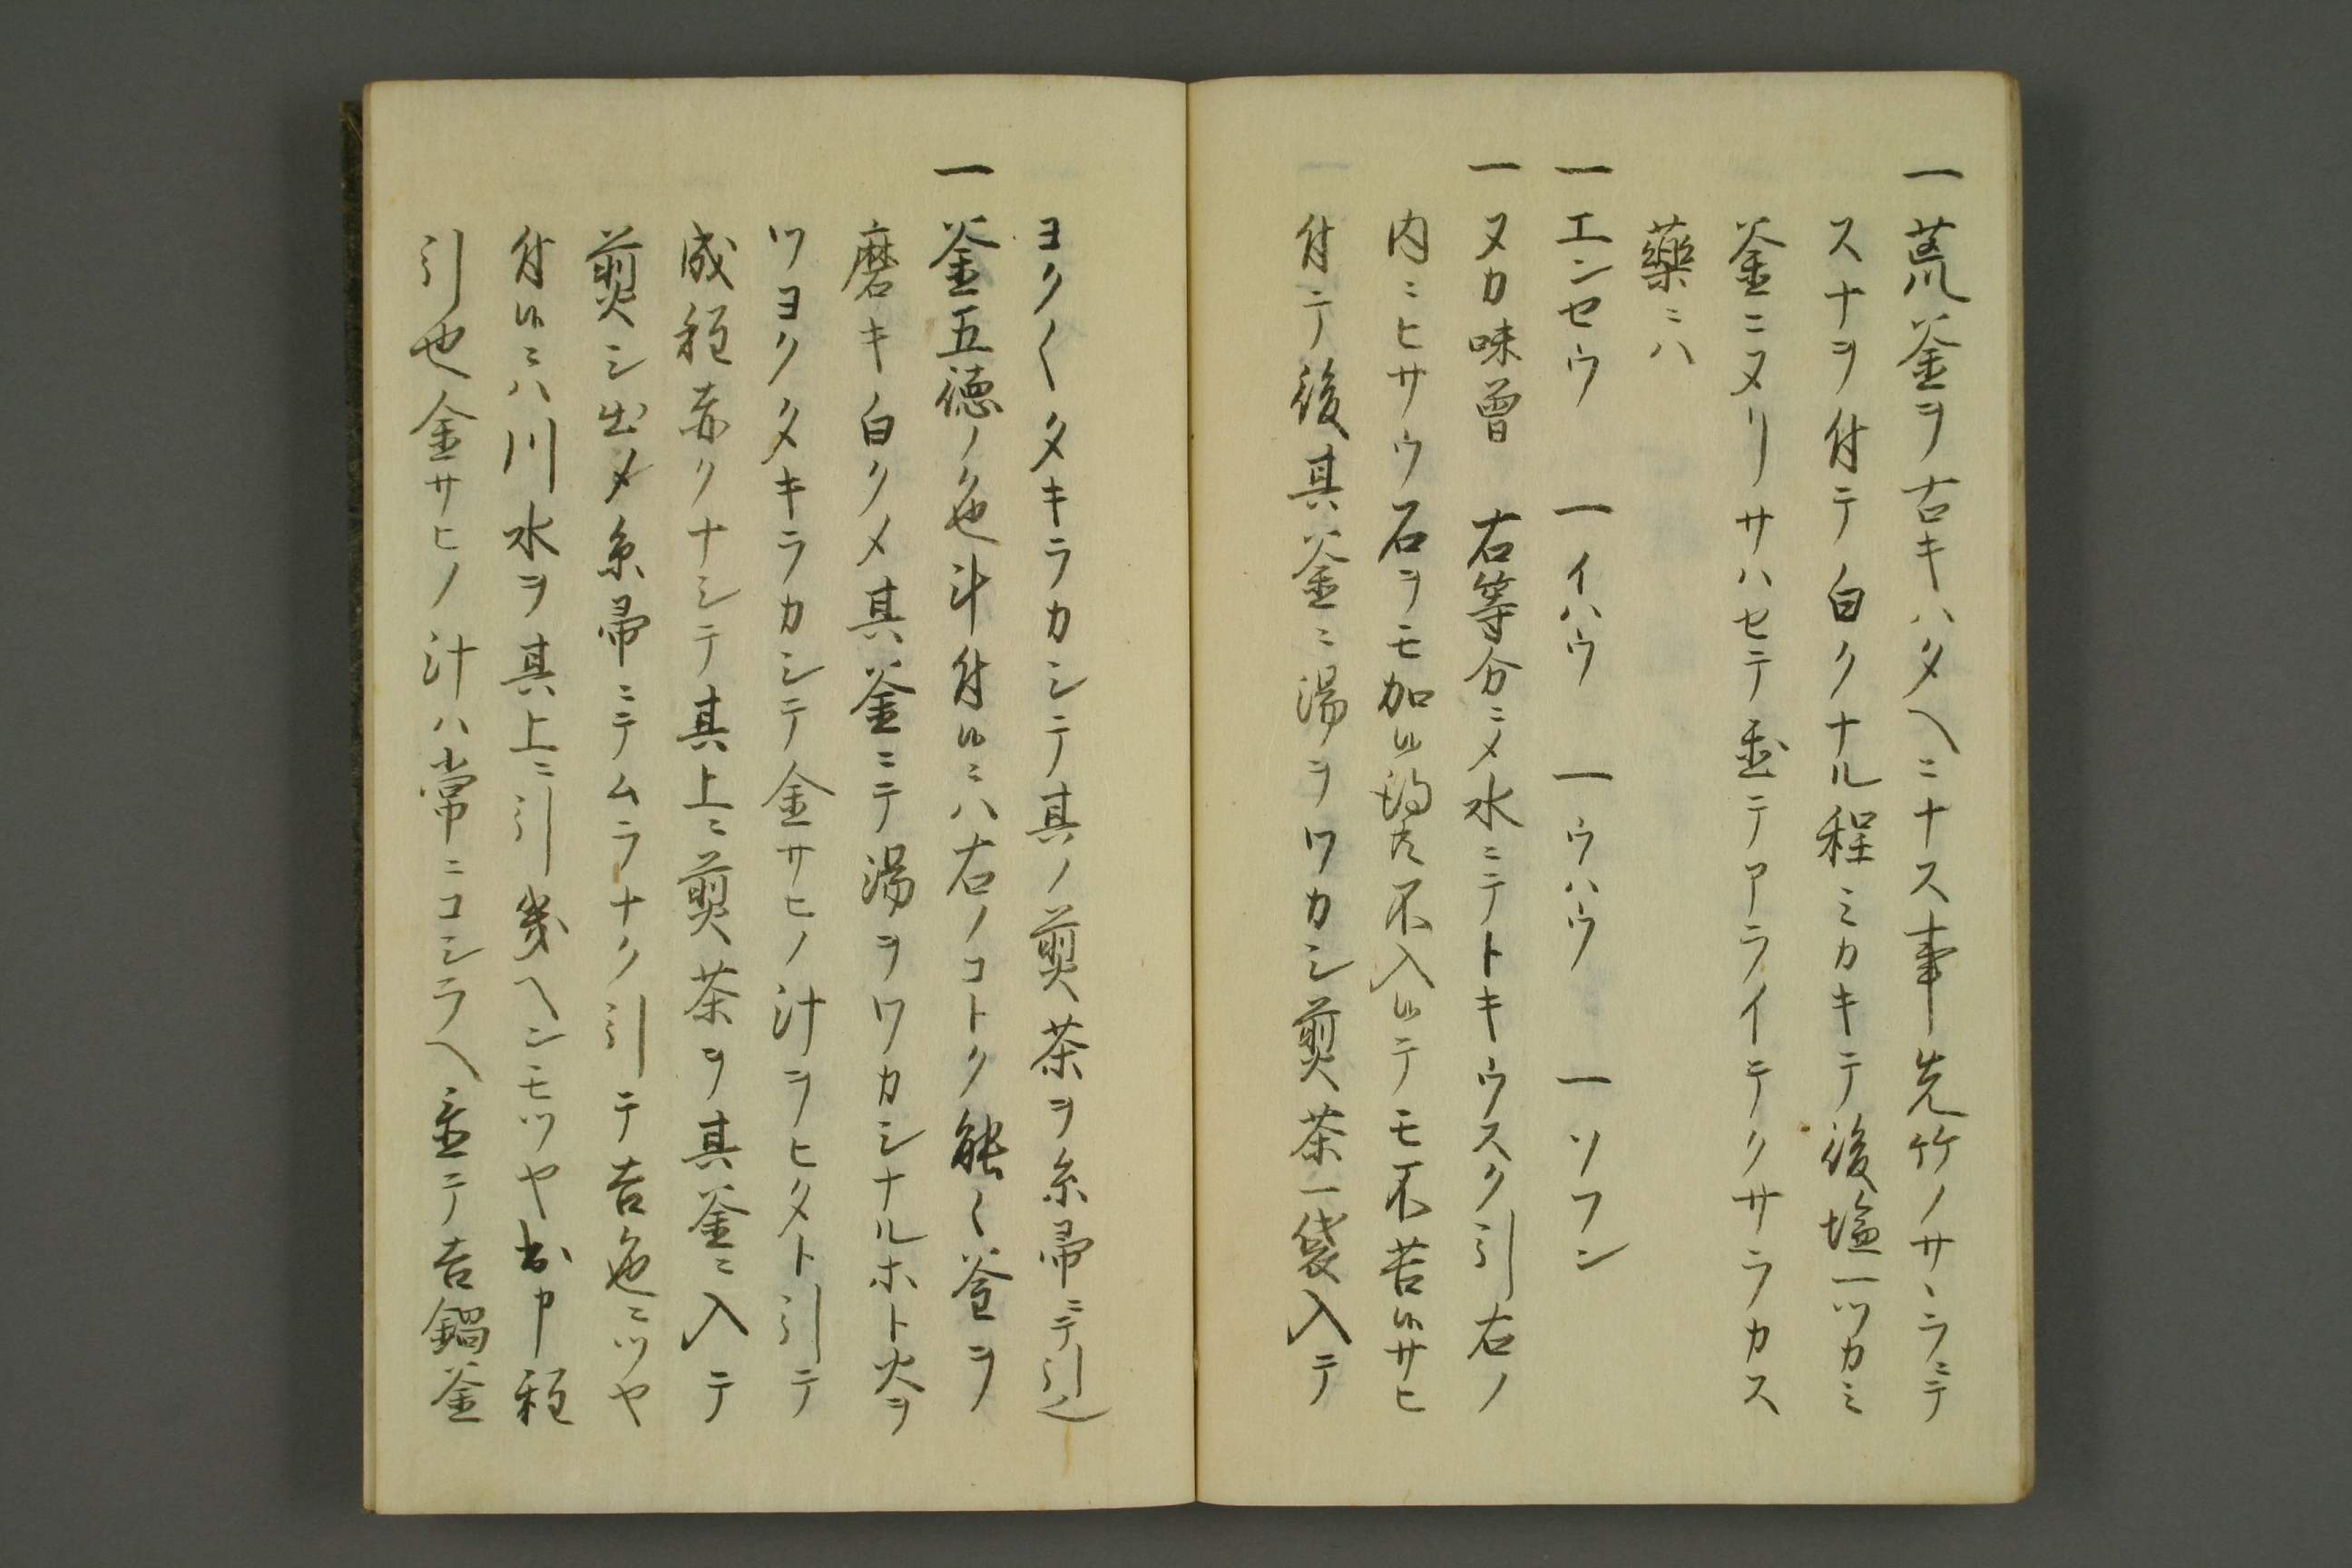 一荒釜ヲ古キハタヘニナス事先竹ノサヽラニテ
スナヲ付テ白クナル程ミカキテ後塩一ツカミ
釜ニヌリサハセテ置テアライテクサラカス
薬ニハ
一エンセウ 一イハウ 一ウハウ 一ソフン
一ヌカ味曽 右等分ニメ水ニテトキウスク引右ノ
内ニヒサウ石ヲモ加 不入 テモ不苦 サヒ
付テ後其釜ニ湯ヲワカシ煎茶一袋入テ
ヨク〱タキラカシテ其ノ煎茶ヲ糸帚ニテ引也
一釜五徳ノ色斗付 ニハ右ノコトク能〱釜ヲ
磨キ白クメ其釜ニテ湯ヲワカシナルホト火ヲ
ツヨクタキラカシテ金サヒノ汁ヲヒタト引テ
成程赤クナシテ其上ニ煎茶ヲ其釜ニ入テ
煎シ出メ糸帚ニテムラナク引テ吉色ニツヤ
付 ニハ川水ヲ其上ニ引幾ヘンモツヤ出申程
引也金サヒノ汁ハ常ニコシラヘ置テ吉鍋釜